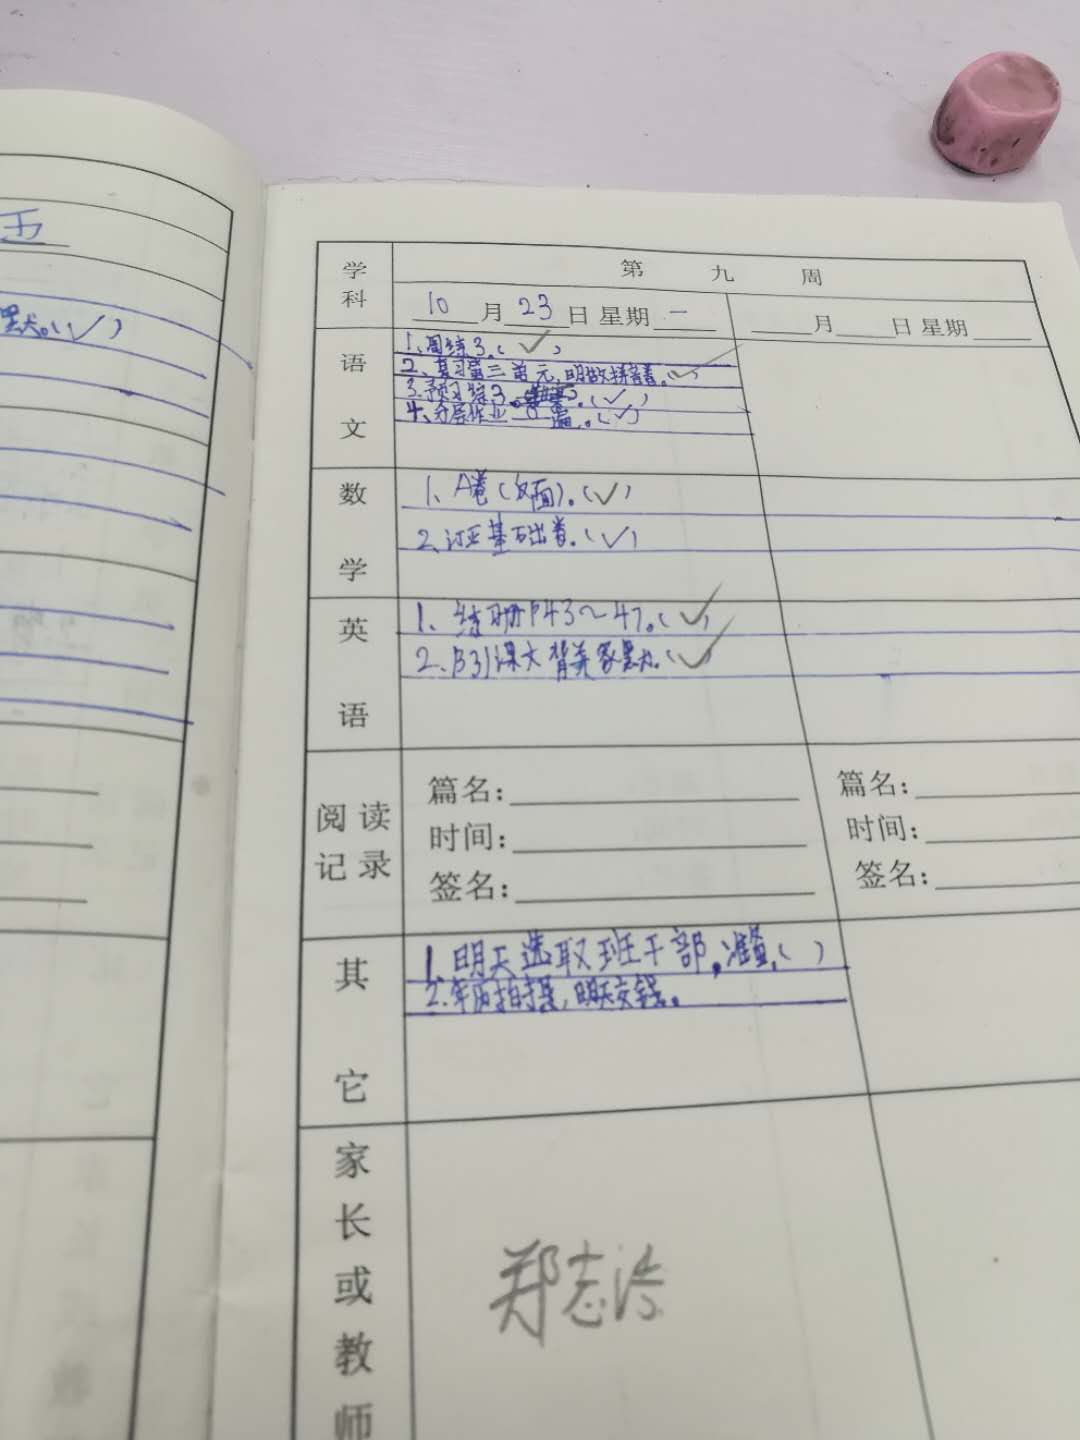 五
默。(✓)
学科
第 九 周
10月23日 星期一
月 日 星期
语文
1、周练3。(✓)
2、复习第三单元,明做拼音卷。(✓)
3.预习综3。(✓)
4、分层作业
数学
1、A卷(反面)。(✓)
2、订正基础卷。(✓)
英语
1、练习册P43~47。(✓)
2、B31课文背关家默。(✓)
阅读记录
篇名:
时间:
签名:
篇名:
时间:
签名:
其它
1、明天选取班干部,准备,( )
2.年历拍摄,明天交钱。
家长或教师
郑志